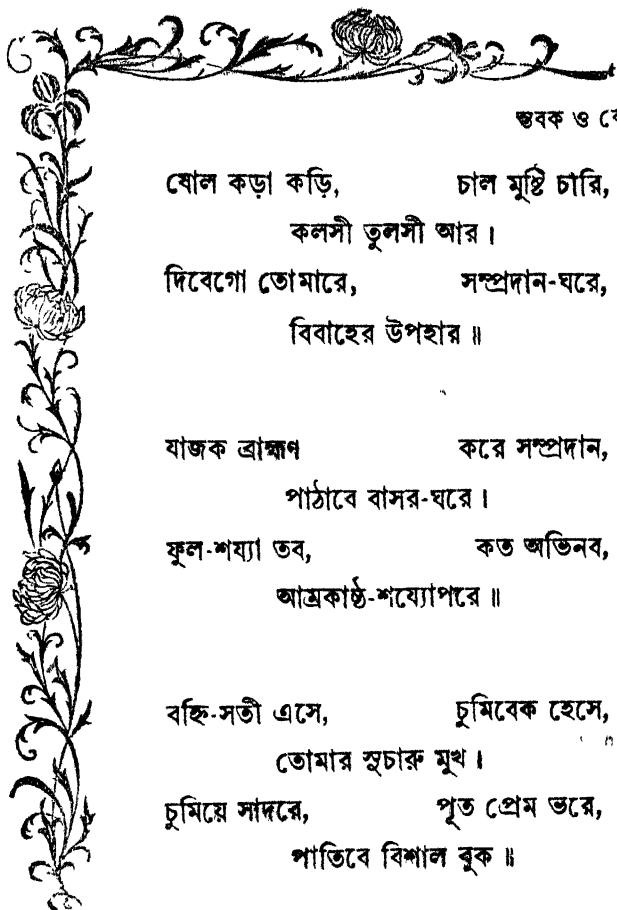 স্তবক ও
ষোল কড়া কড়ি, চাল মুষ্টি চারি,
কলসী তুলসী আর।
দিবেগো তোমারে, সম্প্রদান-ঘরে,
বিবাহের উপহার॥
যাজক ব্রাহ্মণ করে সম্প্রদান,
পাঠাবে বাসর-ঘরে।
ফুল-শয্যা তব, কত অভিনব,
আম্রকাষ্ঠ-শয্যোপরে॥
বহ্নি-সতী এসে, চুমিবেক হেসে,
তোমার সুচারু মুখ।
চুমিয়ে সাদরে, পূত প্রেম ভরে,
পাতিবে বিশাল বুক॥